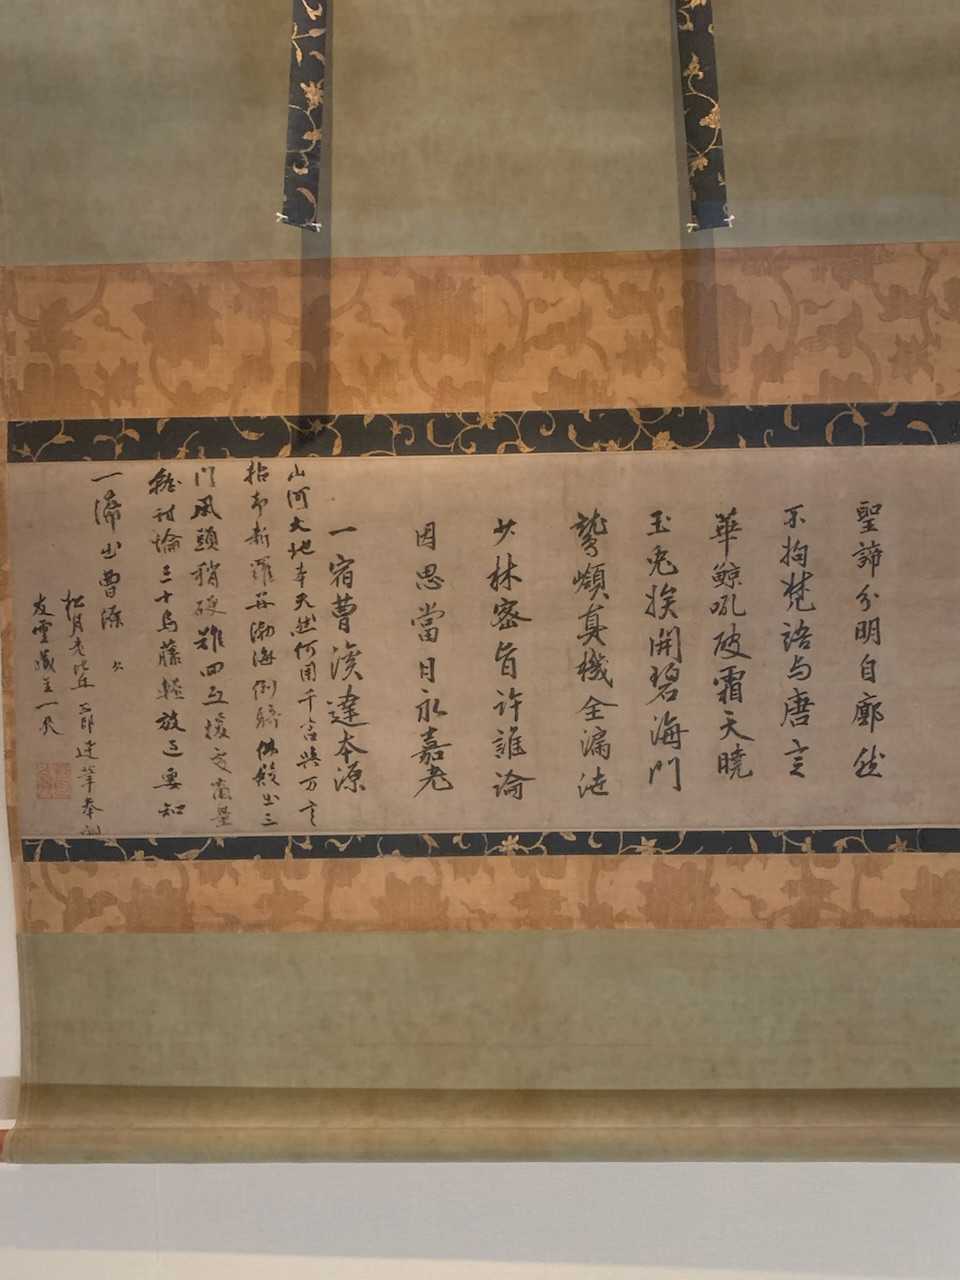 聖諦分明自廓然
不拘梵語与唐言
華鯨吼破霜天曉
玉兎挨開碧海門
鷲嶺真機全漏泄
少林密旨許誰論
因思當日永嘉老
一宿曹溪達本源
山河大地本天然何用千言與万言
拈却新羅并渤海倒騎佛殿出三
門風頭稍硬難回互 商量
討論三十烏藤輕放過要知
一滴出曹源
松月老比丘 走筆奉
友雲藏主一笑